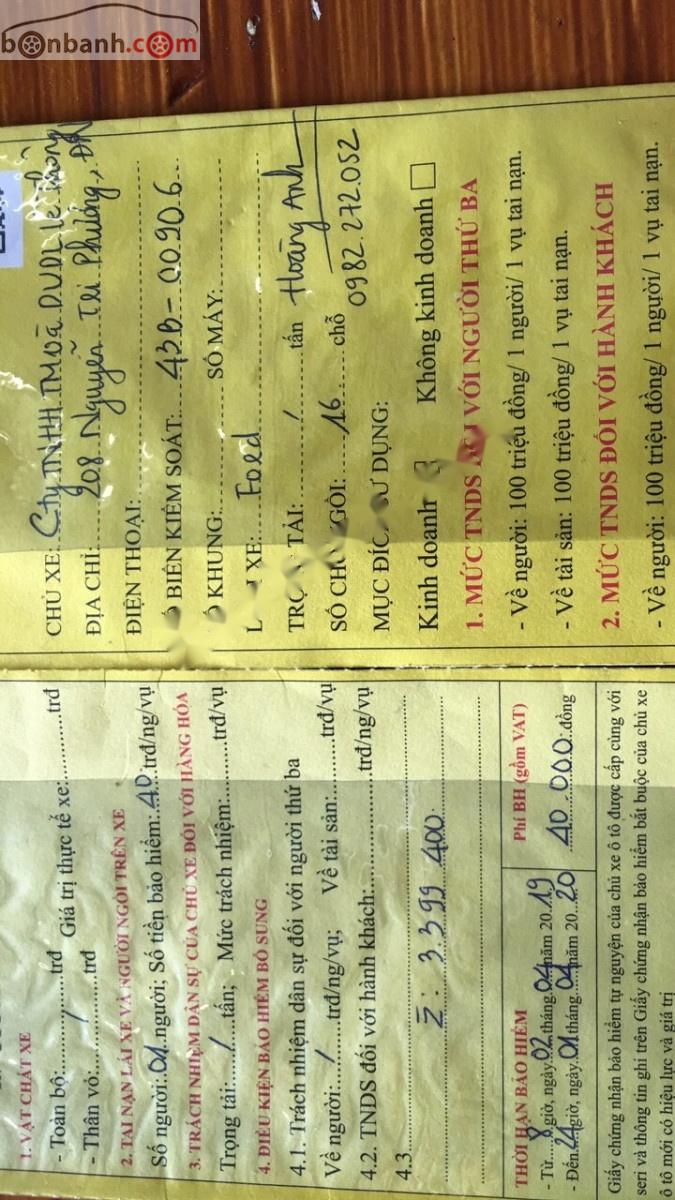 bonbanh.com
CHỦ XE: Cty TNHH TM và DVDL Lê Thông
ĐỊA CHỈ: 208 Nguyễn Tri Phương, ĐN
ĐIỆN THOẠI:
BIÊN KIỂM SOÁT: 43B-00906
KHUNG: SỐ MÁY:
XE: Ford
TẢI: / tấn Hoàng Anh
SỐ CHỖ NGỒI: 16 chỗ 0982.272.052
MỤC ĐÍCH SỬ DỤNG:
Kinh doanh Không kinh doanh
1. MỨC TNDS VỚI NGƯỜI THỨ BA
- Về người: 100 triệu đồng/ 1 người/ 1 vụ tai nạn.
- Về tài sản: 100 triệu đồng/ 1 vụ tai nạn.
2. MỨC TNDS ĐỐI VỚI HÀNH KHÁCH
- Về người: 100 triệu đồng/ 1 người/ 1 vụ tai nạn.
1. VẬT CHẤT XE
- Toàn bộ: / trđ Giá trị thực tế xe: trđ
- Thân vỏ: / trđ
2. TAI NẠN LÁI XE VÀ NGƯỜI NGỒI TRÊN XE
Số người: 01 người; Số tiền bảo hiểm: 40 trđ/ng/vụ
3. TRÁCH NHIỆM DÂN SỰ CỦA CHỦ XE ĐỐI VỚI HÀNG HÓA
Trọng tải: / tấn; Mức trách nhiệm: trđ/vụ
4. ĐIỀU KIỆN BẢO HIỂM BỔ SUNG
4.1. Trách nhiệm dân sự đối với người thứ ba
Về người: / trđ/ng/vụ; Về tài sản: trđ/vụ
4.2. TNDS đối với hành khách: trđ/ng/vụ
4.3
Σ: 3.399.400
THỜI HẠN BẢO HIỂM
- Từ 8 giờ, ngày 02 tháng 04 năm 2019
- Đến 24 giờ, ngày 01 tháng 04 năm 2020
Phí BH (gồm VAT)
40.000 đồng
Giấy chứng nhận bảo hiểm tự nguyện của chủ xe ô tô được cấp cùng với
seri và thông tin ghi trên Giấy chứng nhận bảo hiểm bắt buộc của chủ xe
ô tô mới có hiệu lực và giá trị